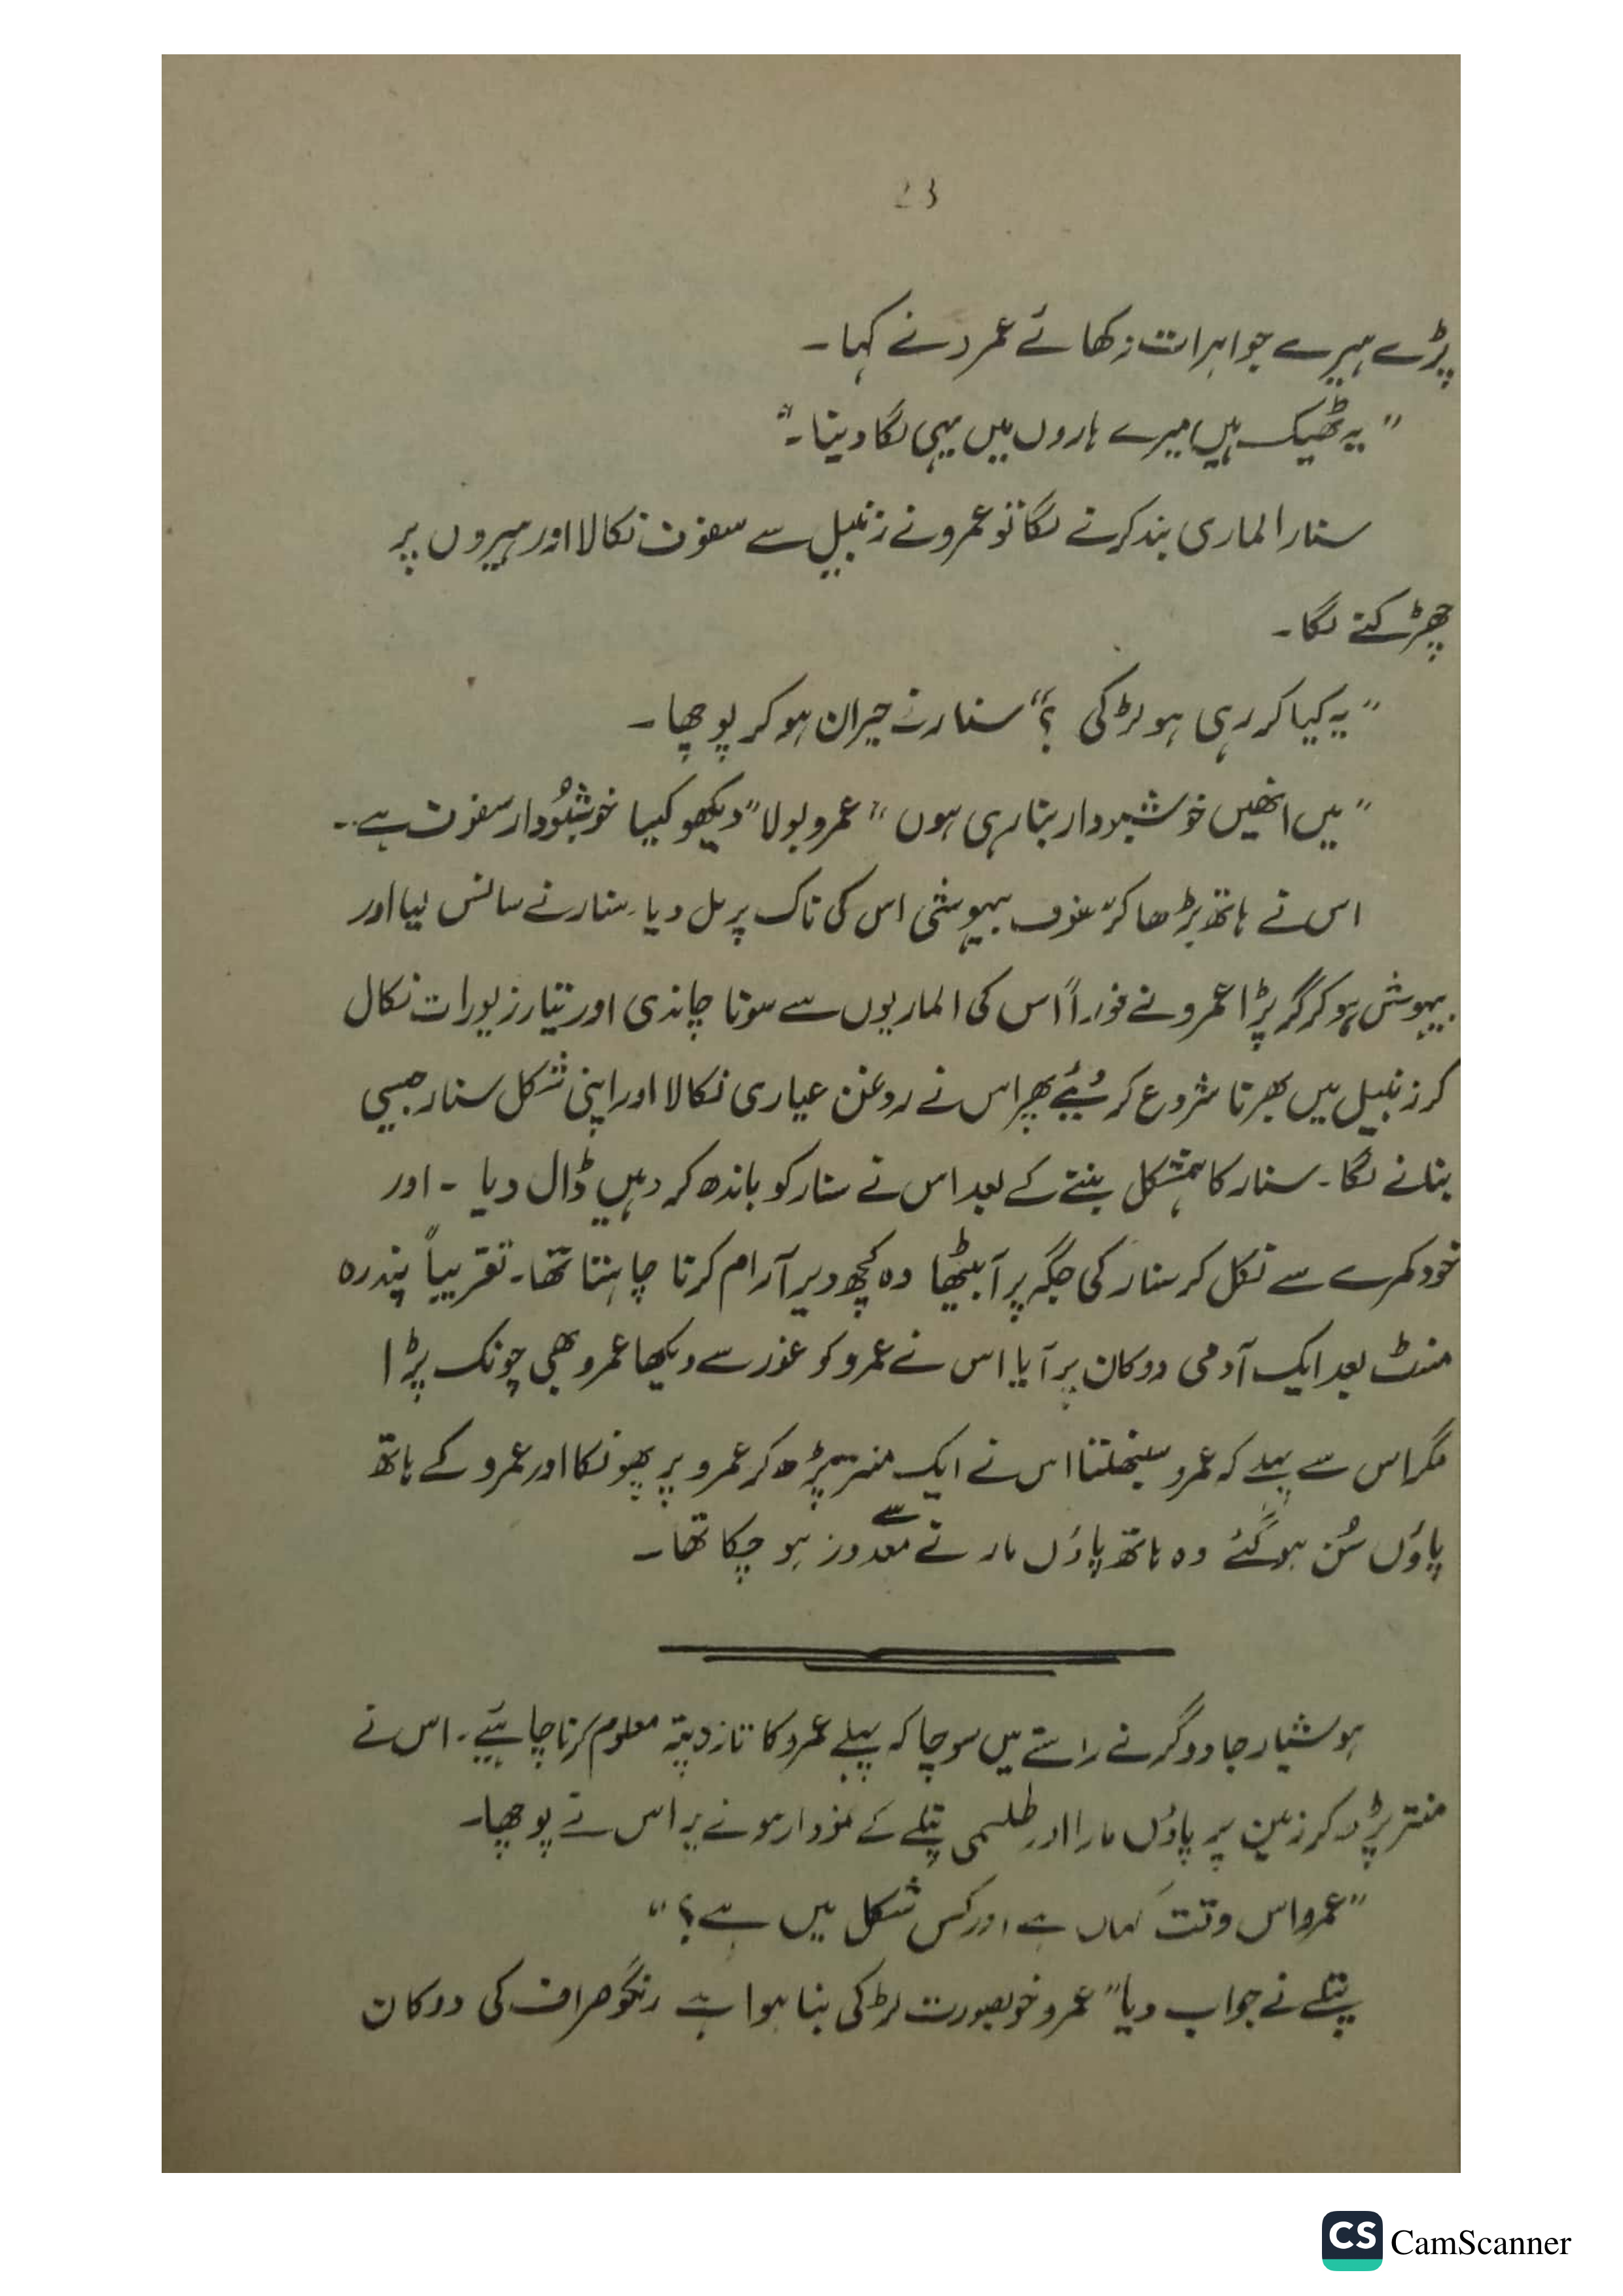 23
پڑے ہیرے جواہرات دکھائے عمرو نے کہا۔
"یہ ٹھیک ہیں میرے ہاروں میں یہی لگا دینا۔"
سنار الماری بند کرنے لگا تو عمرو نے زنبیل سے سفوف نکالا اور ہیروں پر
چھڑکنے لگا۔
"یہ کیا کر رہی ہو لڑکی ؟" سنار نے حیران ہو کر پوچھا۔
"میں انھیں خوشبودار بنا رہی ہوں" عمرو بولا "دیکھو کیسا خوشبُودار سفوف ہے۔۔
اس نے ہاتھ بڑھا کر سفوف بیہوشی اس کی ناک پر مل دیا۔ سنار نے سانس لیا اور
بیہوش ہو کر گر پڑا عمرو نے فوراً اس کی الماریوں سے سونا چاندی اور تیار زیورات نکال
کر زنبیل میں بھرنا شروع کر دیئے پھر اس نے روغن عیاری نکالا اور اپنی شکل سنار جیسی
بنانے لگا۔ سنار کا ہمشکل بننے کے بعد اس نے سنار کو باندھ کر وہیں ڈال دیا ۔ اور
خود کمرے سے نکل کر سنار کی جگہ پر آ بیٹھا وہ کچھ دیر آرام کرنا چاہتا تھا۔ تقریباً پندرہ
منٹ بعد ایک آدمی دوکان پر آیا اس نے عمرو کو غور سے دیکھا عمرو بھی چونک پڑا
مگر اس سے پہلے کہ عمرو سنبھلتا اس نے ایک منتر پڑھ کر عمرو پر پھونکا اور عمرو کے ہاتھ
پاؤں سُن ہو گئے وہ ہاتھ پاؤں مارنے سے معدور ہو چکا تھا۔
ہوشیار جادوگر نے راستے میں سوچا کہ پہلے عمرو کا تازہ پتہ معلوم کرنا چاہئیے۔ اس نے
منتر پڑھ کر زمین پر پاؤں مارا اور طلسمی پتلے کے نمودار ہونے پر اس نے پوچھا۔
"عمرو اس وقت کہاں ہے اور کس شکل میں ہے؟"
پتلے نے جواب دیا "عمرو خوبصورت لڑکی بنا ہوا ہے رنگو صراف کی دوکان
CS CamScanner